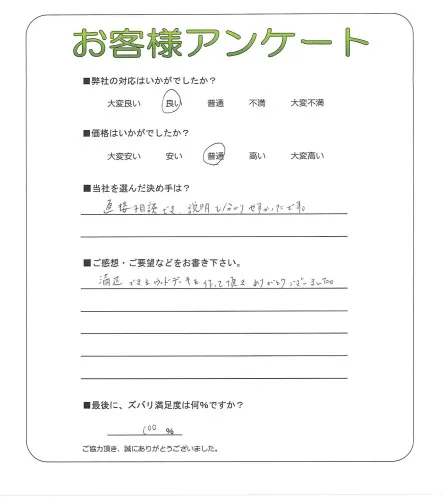 お客様アンケート
■弊社の対応はいかがでしたか？
大変良い 良い 普通 不満 大変不満
■価格はいかがでしたか？
大変安い 安い 普通 高い 大変高い
■当社を選んだ決め手は？
直接相談でき、説明も分かりやすかったです。
■ご感想・ご要望などをお書き下さい。
満足できるウッドデッキを作って頂きありがとうございました。
■最後に、ズバリ満足度は何％ですか？
100 ％
ご協力頂き、誠にありがとうございました。